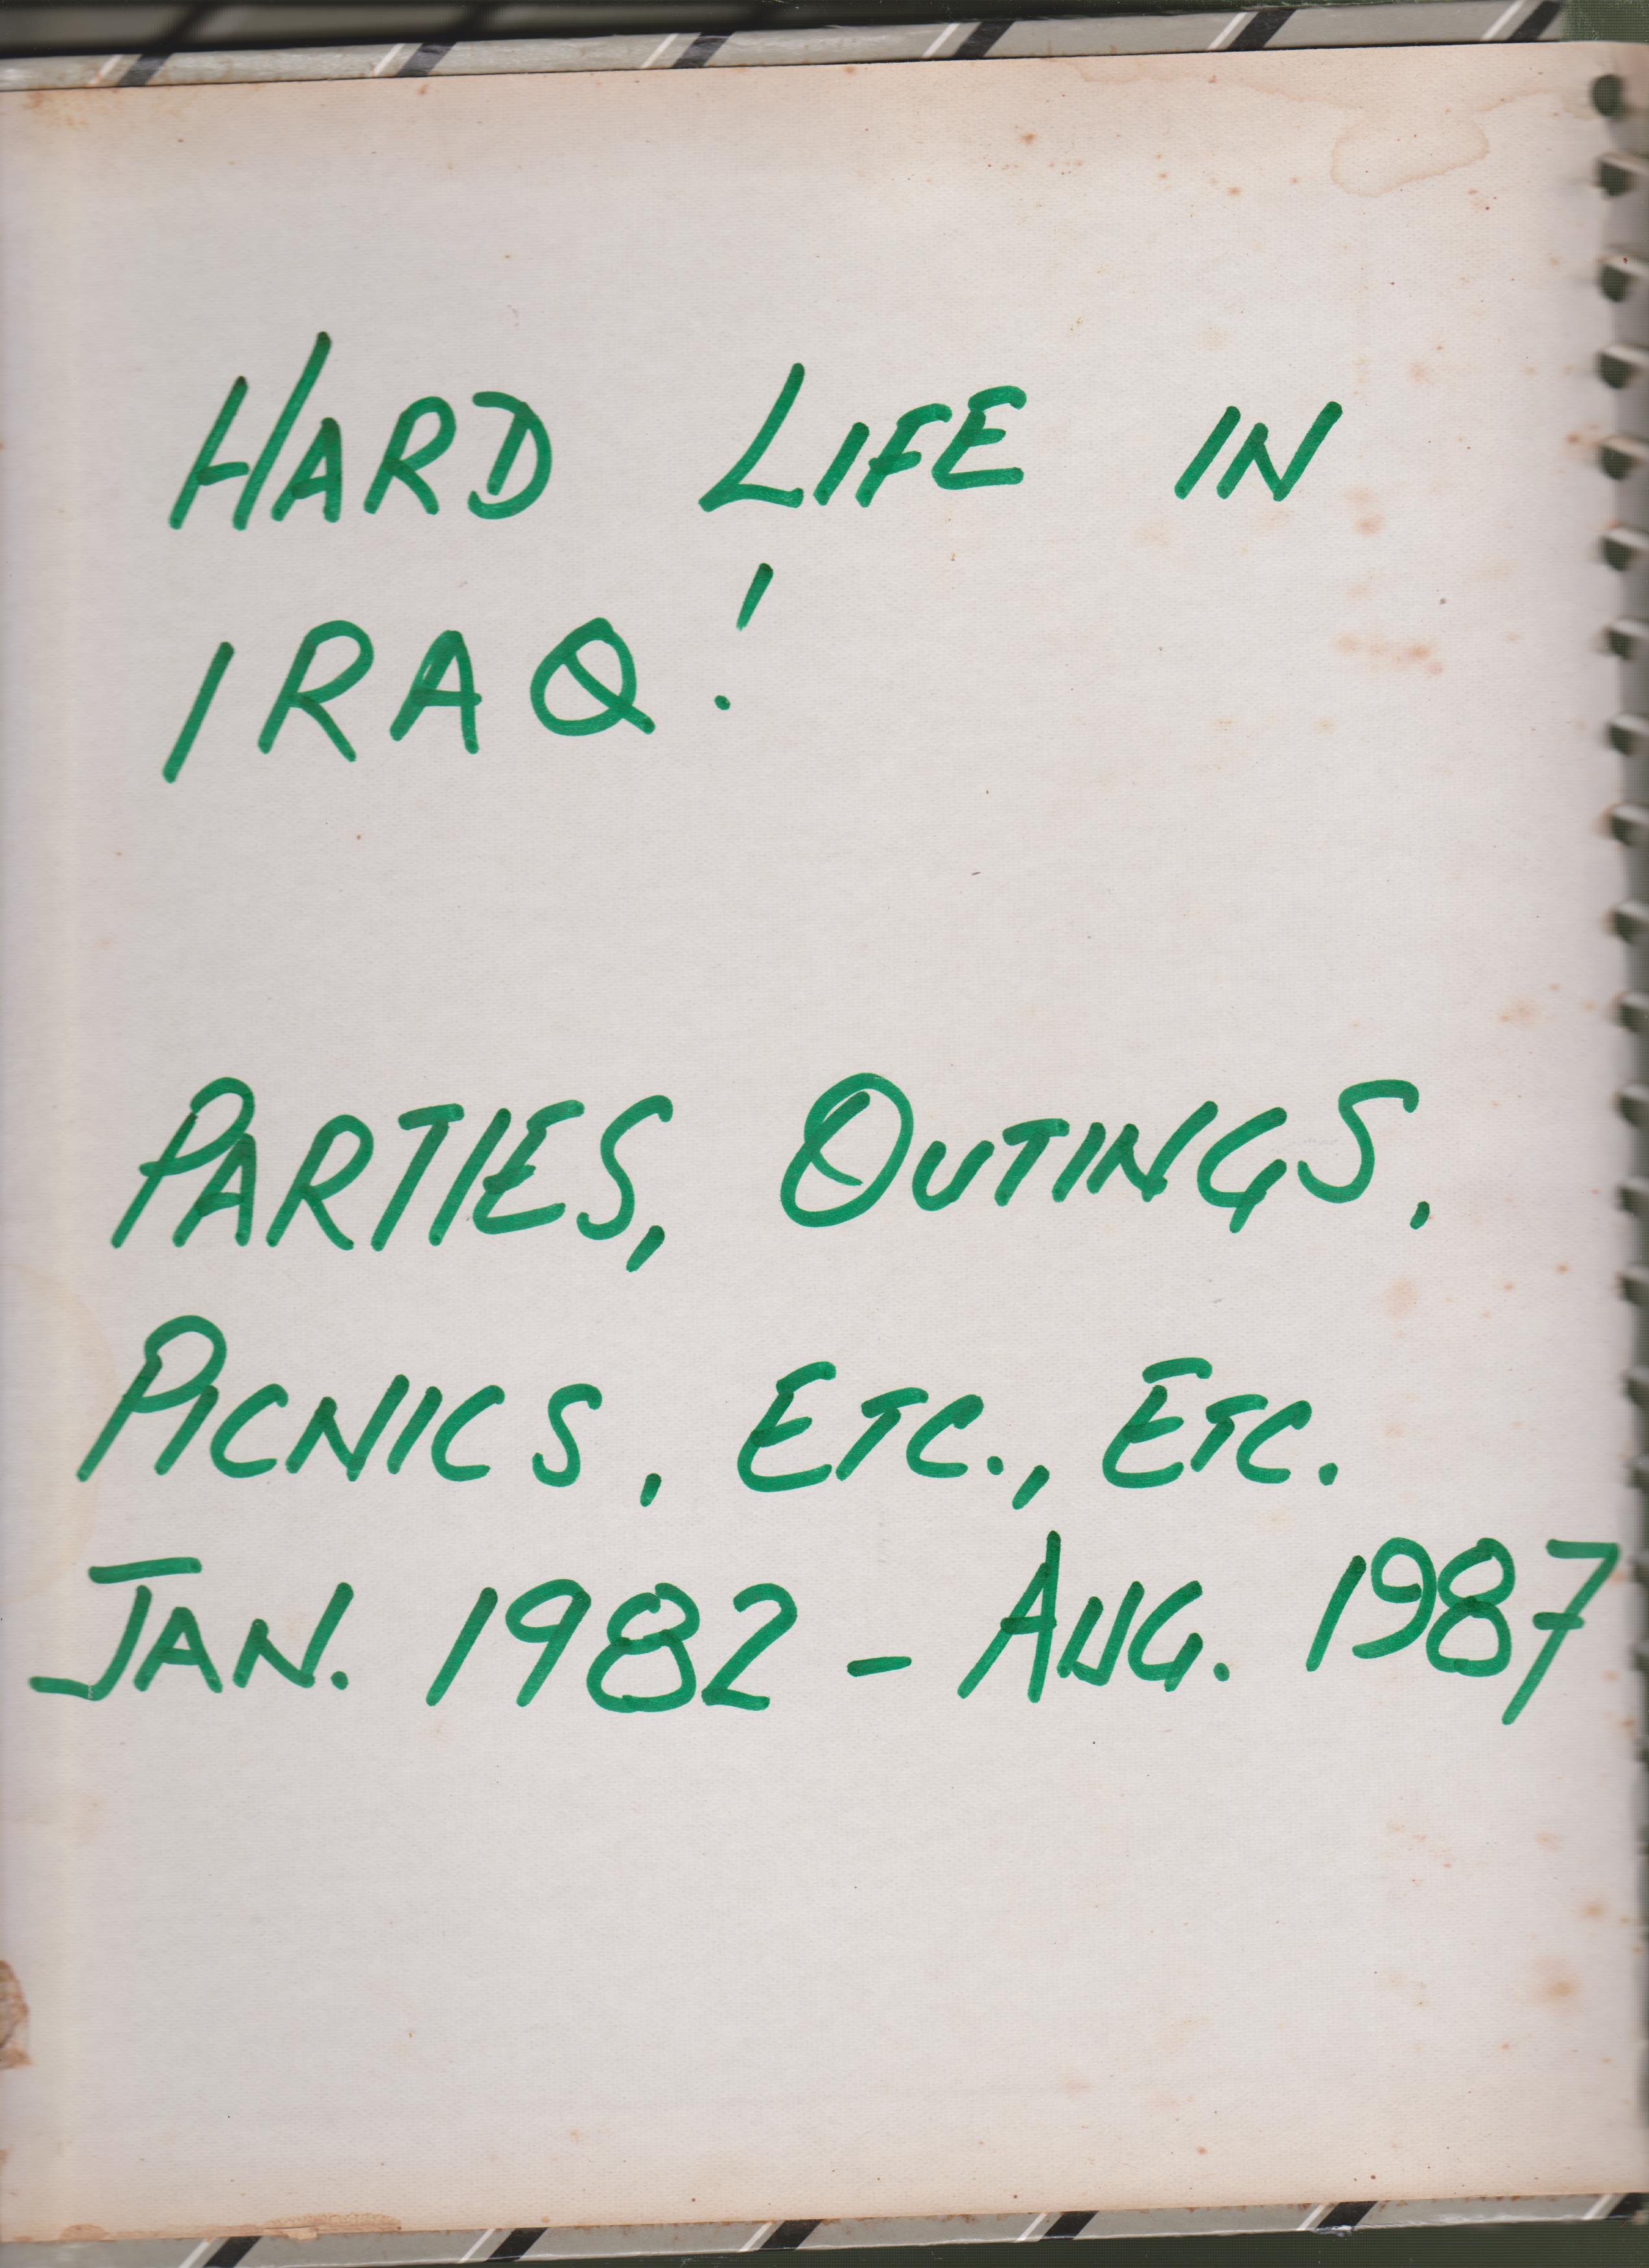 HARD LIFE IN
IRAQ!
PARTIES, OUTINGS,
PICNICS, ETC., ETC.
JAN. 1982 - AUG. 1987